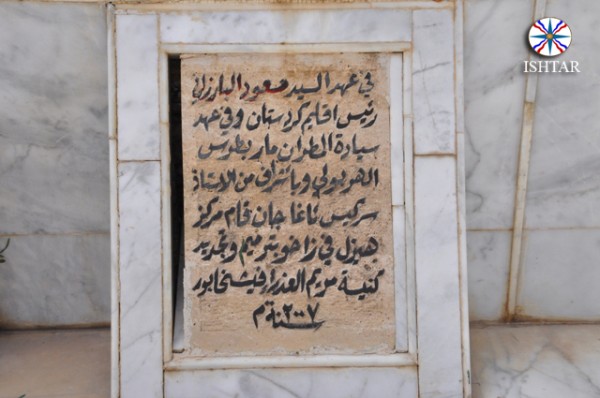 ISHTAR
في عهد السيد مسعود البارزاني
رئيس اقليم كردستان وفي عهد
سيادة المطران مار بطرس
الهربولي وباشراف من الاستاذ
سركيس ئاغا جان قام مركز
هيزل في زاخو بترميم وتجديد
كنيسة مريم العذراء فيشخابور
سنة ٢٠٠٧ م